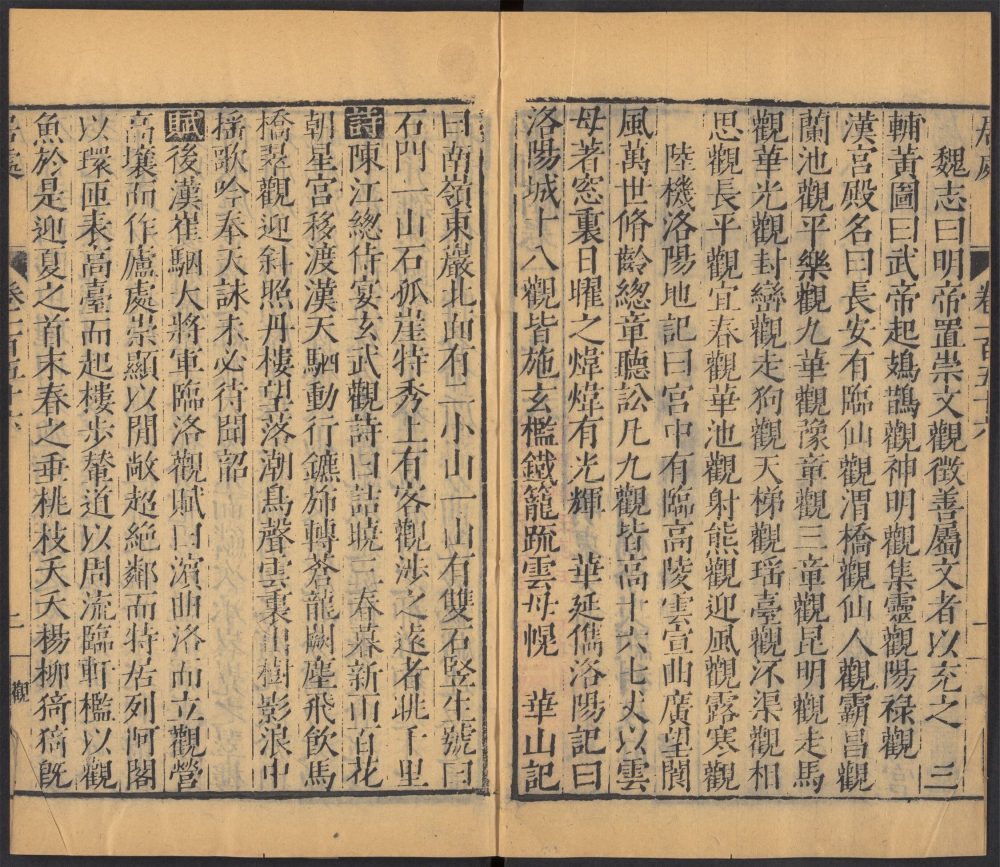 居處
卷一百五十六
魏志曰明帝置崇文觀徵善屬文者以充之　三
輔黃圖曰武帝起鳷鵲觀神明觀集靈觀陽祿觀
漢宮殿名曰長安有臨仙觀渭橋觀仙人觀霸昌觀
蘭池觀平樂觀九華觀豫章觀三童觀昆明觀走馬
觀華光觀封巒觀走狗觀天梯觀瑶臺觀沠渠觀相
思觀長平觀宜春觀華池觀射熊觀迎風觀露寒觀
陸機洛陽地記曰宮中有臨高陵雲宣曲廣望閬
風萬世脩齡總章聽訟凡九觀皆高十六七丈以雲
母著窓裏日曜之煒煒有光輝　華延儁洛陽記曰
洛陽城十八觀皆施玄檻鐵籠疏雲母幌　華山記
曰南嶺東巖北面有二小山一山有雙石竪生號曰
石門一山石孤崖特秀上有客觀涉之遠者眺千里
詩陳江總侍宴玄武觀詩曰詰曉三春暮新雨百花
朝星宮移渡漢天駟動行鑣旆轉蒼龍闕塵飛飲馬
橋翠觀迎斜照丹樓望落潮鳥聲雲裏出樹影浪中
摇歌吟奉天詠未必待聞韶
賦後漢崔駰大將軍臨洛觀賦曰濵曲洛而立觀營
高壤而作廬處崇顯以閒敞超絶鄰而特居列阿閣
以環匝表高臺而起樓步輦道以周流臨軒檻以觀
魚於是迎夏之首末春之垂桃枝夭夭楊柳猗猗旣
居處
卷一百五十六
二
觀